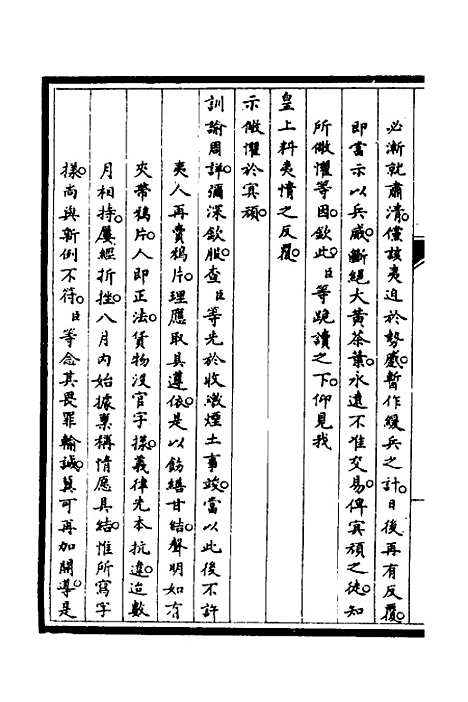 必漸就肅清。儻該夷迫於勢蹙。暫作緩兵之計。日後再有反覆。
即當示以兵威。斷絕大黃茶葉。永遠不准交易。俾冥頑之徒。知
所儆懼等因。欽此。臣等跪讀之下。仰見我
皇上料夷情之反覆。
示儆懼於冥頑。
訓諭周詳。彌深欽服。查臣等先於收繳煙土事竣。當以此後不許
夷人再賣鴉片。理應取具遵依。是以飭繕甘結。聲明如有
夾帶鴉片。人即正法。貨物沒官字樣。義律先本抗違。迨數
月相持。屢經折挫。八月內始據稟稱情願具結。惟所寫字
樣。尚與新例不符。臣等念其畏罪輸誠。冀可再加開導。是